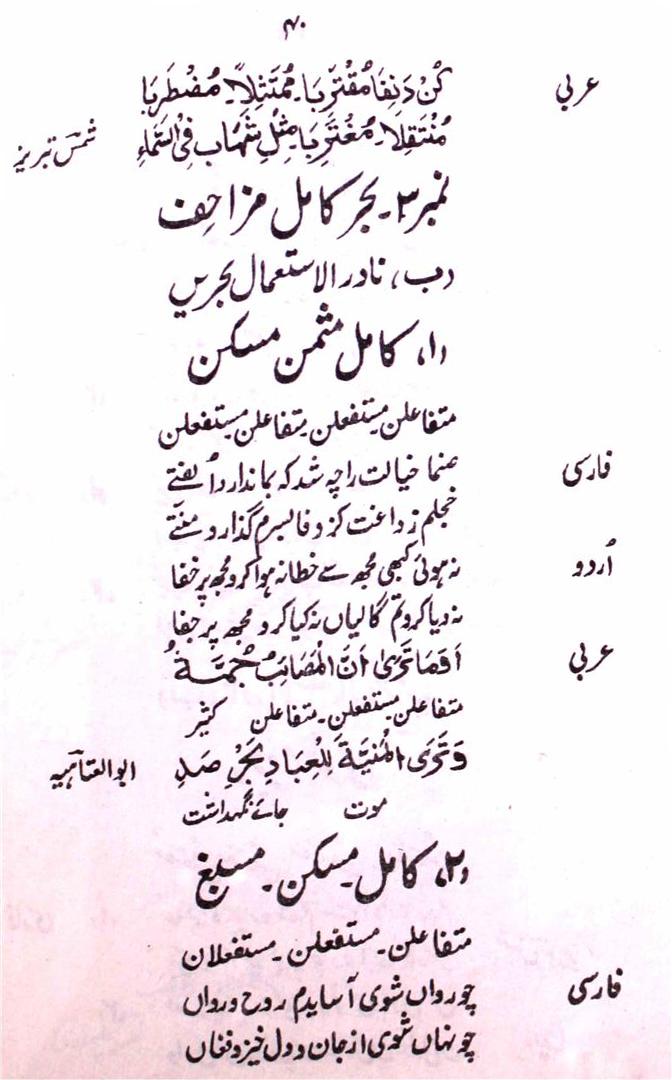 ۴۰
عربی کُنْ دَنِفًا مُقْتَرِبَا۔ مُمْتَثِلًا۔ مُضْطَرِبَا
مُنْتَقِلًا۔ مُغْتَرِبَا۔ مِثْلِ شَہَابٍ فِی السَّمَاءِ شمس تبریز
نمبر ۳۔ بحر کامل مزاحف
(ب) نادر الاستعمال بحریں
(۱) کامل مثمن مسکن
متفاعلن مستفعلن متفاعلن مستفعلن
فارسی صنما خیالت را چہ شد کہ بما ندارد اُلفتے
خجلم ز داغت کز وفا بسرم گذارد منّتے
اُردو نہ ہوئی کبھی مجھ سے خطا نہ ہوا کرو مجھ پر خفا
نہ دیا کرو تم گالیاں نہ کیا کرو مجھ پر جفا
عربی اَفَمَا تَرَیٰ اَنَّ الْمَصَائِبُ جُمَّةُ
متفاعلن مستفعلن۔ متفاعلن کثیر
وَتَرَی الْمَنِیَّةَ لِلْعِبَادِ بَمَرْصَدِ ابوالعتاہیہ
موت جائے نگہداشت
(۲) کامل۔ مسکن۔ مسبغ
متفاعلن۔ مستفعلن۔ مستفعلان
فارسی چو رواں شوی آسایدم روح و رواں
چو نہاں شوی از جان و دل خیزد فغاں